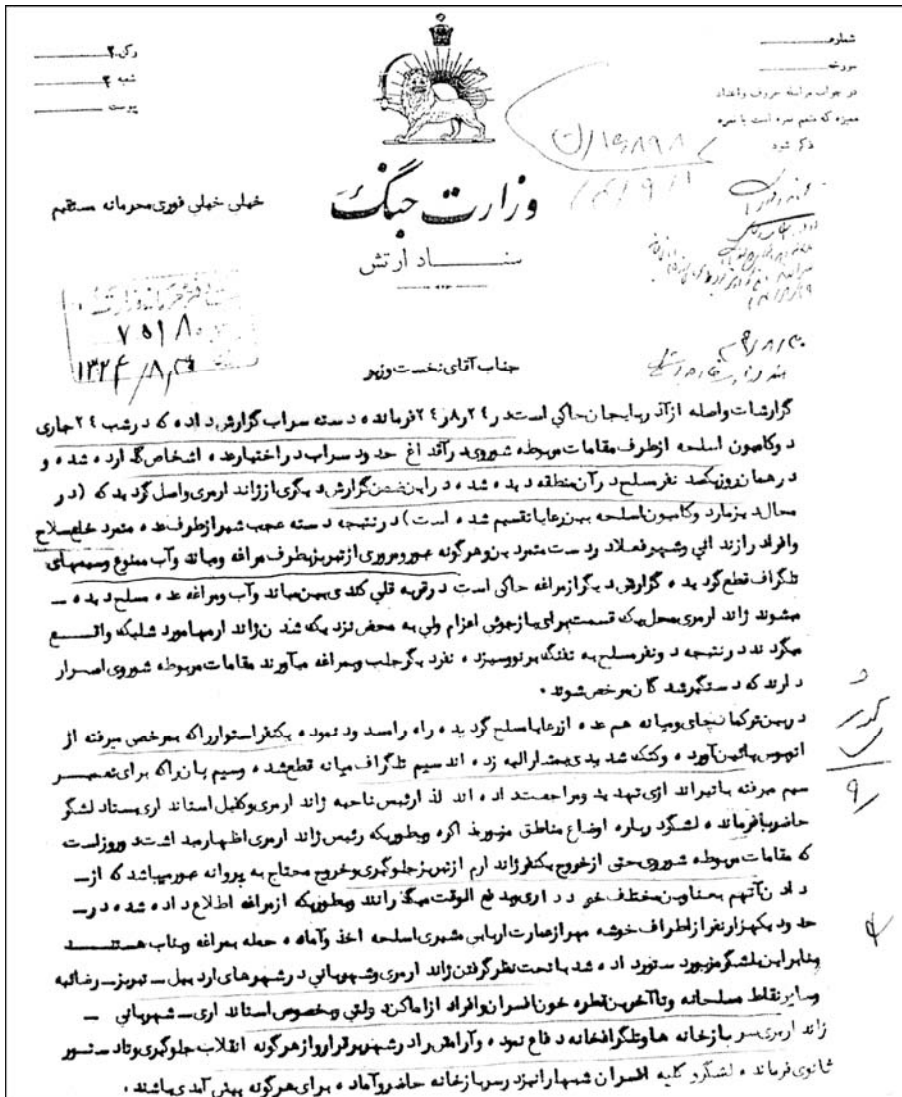 شماره
مورخه
در جواب مراسله حروف و اعداد
ممیزه که متمم نمره است با نمره
ذکر شود
رکن ۲
شعبه ۳
پیوست
وزارت جنگ
ستاد ارتش
خیلی خیلی فوری محرمانه مستقیم
۷۵۱۸۰
۱۳۲۴/۸
جناب آقای نخست وزیر
گزارشات واصله از آذربایجان حاکی است در ۲۴ر۸ر۲۴ فرمانده دسته سراب گزارش داده که در شب ۲۴ جاری
دو کامیون اسلحه از طرف مقامات مربوطه شوروی در آقداغ حدود سراب در اختیار عده اشخاص گذارده شده و
در همان روز یکصد نفر مسلح در آن منطقه دیده شده در این ضمن گزارش دیگری از ژاندارمری واصل گردید که (در
محال دیزمارد و کامیون اسلحه بین رعایا تقسیم شده است) در نتیجه دسته عجب شیر از طرف عده متمرد خلع سلاح
و افراد را زندانی و شهر فعلا در دست متمردین و هرگونه عبور و مروری از تبریز بطرف مراغه و میاندوآب ممنوع و سیمهای
تلگراف قطع گردیده گزارش دیگر از مراغه حاکی است در قریه قلی کندی بین میاندوآب و مراغه عده مسلح دیده –
میشوند ژاندارمری محل یک قسمت برای بازجوئی اعزام ولی به محض نزدیک شدن ژاندارمها مورد شلیک واقع
میگردند در نتیجه دو نفر مسلح به تفنگ برنو و سیزده نفر دیگر جلب و بمراغه میآورند مقامات مربوطه شوروی اصرار
دارند که دستگیر شدگان مرخص شوند.
در بین ترکمانچای و میانه هم عده از رعایا مسلح گردیده راه را مسدود نموده یکنفر استوار را که بمرخصی میرفته از
اتوبوس پائین آورده و کتک شدیدی بمشارالیه زده اند سیم تلگراف میانه قطع شده و سیم بان را که برای تعمیر
سیم میرفته با تیراندازی تهدید و مراجعت داده اند لذا رئیس ناحیه ژاندارمری و کفیل استانداری بستاد لشگر
حاضر و با فرمانده لشگر درباره اوضاع مناطق مزبور مذاکره و بطوریکه رئیس ژاندارمری اظهار میداشت دو روز است
که مقامات مربوطه شوروی حتی از خروج یکنفر ژاندارم از تبریز جلوگیری و خروج محتاج به پروانه عبور میباشد که از –
دادن آنهم بعناوین مختلف خودداری و بدفع الوقت میگذرانند و بطوریکه از مراغه اطلاع داده شده در –
حدود یکهزار نفر از اطراف خوشه مهر از عمارت اربابی مشیری اسلحه اخذ و آماده حمله بمراغه و بناب هستند
بنابراین بلشگر مزبور دستور داده شد با تحت نظر گرفتن ژاندارمری و شهربانی در شهرهای اردبیل – تبریز – رضائیه
و سایر نقاط مسلحانه و تا آخرین قطره خون افسران و افراد از اماکن دولتی و بخصوص استانداری – شهربانی –
ژاندارمری سربازخانه ها و تلگرافخانه دفاع نموده و آرامش را در شهر برقرار و از هرگونه انقلاب جلوگیری و تا دستور
ثانوی فرمانده لشگر و کلیه افسران شبها را نیز در سربازخانه حاضر و آماده برای هرگونه پیش آمدی باشند.